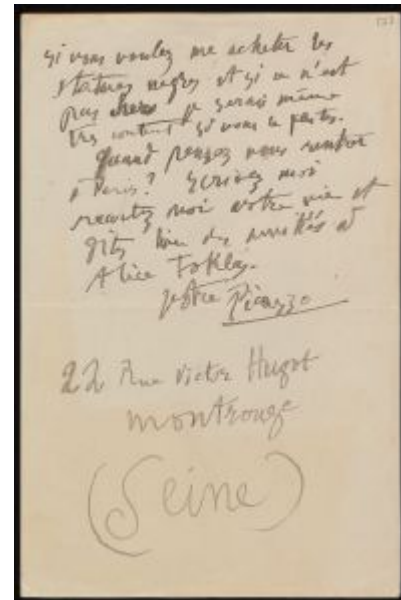 si vous voulez me acheter les
statues negres et si ce n'est
pas chers je serais même
très content si vous le faites.
Quand pensez vous rentrer
a Paris? Ecrivez moi
racontez moi votre vie et
dites bien des amitiés a
Alice Toklas.
Votre Picasso
22 Rue Victor Hugot
montrouge
(Seine)